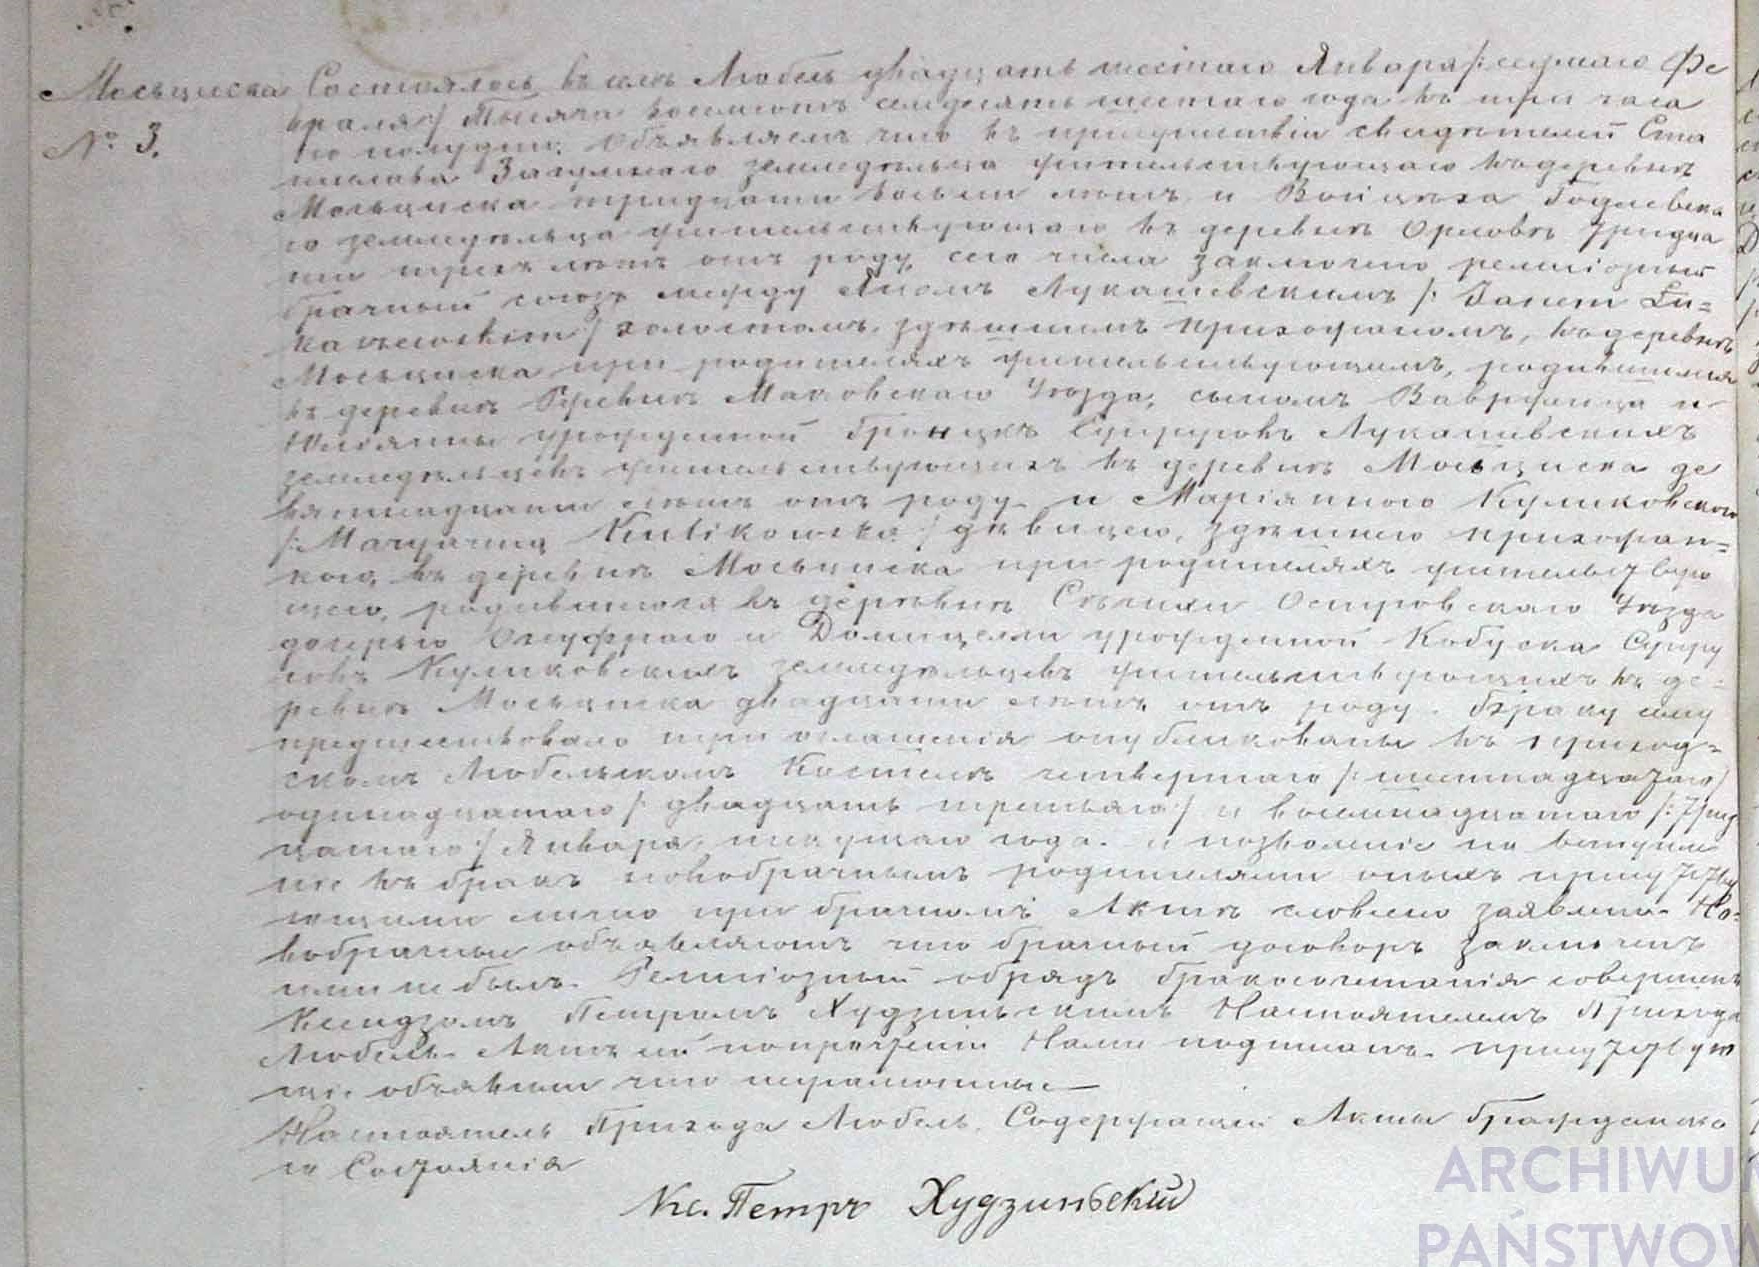 Мосциска Состоялось въ селѣ Любель двадцать шестаго Января /: седмаго Фе
№ 3. враля :/ Тысяча восемсотъ семдесятъ шестаго года въ три часа
по полудни. Объявляемъ что въ присутствіи свидѣтелей Ста
нислава земледѣльца жительствующаго въ деревнѣ
Мосциска тридцати восьми лѣтъ и Войцѣха Годлевска
го земледѣльца жительствующаго въ деревнѣ Орловѣ тридца
ти трехъ лѣтъ отъ роду, сего числа заключено религіозный
брачный союзъ между Яномъ Лукашевскимъ /: Janem Łu=
kaszewskim :/ холостомъ, здѣшнимъ прихожаномъ, въ деревнѣ
Мосциска при родителяхъ жительствующимъ, родившимся
въ деревнѣ Маковскаго Уѣзда, сыномъ Ваврженца и
Маріянны урожденной Супруговъ Лукашевскихъ
земледѣльцевъ жительствующихъ въ деревнѣ Мосциска де
вятнадцати лѣтъ отъ роду и Маріянною Куликовскою
/: Maryanną Kulikowską :/ дѣвицею, здѣшнею прихожан=
кою, въ деревнѣ Мосциска при родителяхъ жительству
щею, родившеюся въ деревнѣ Островскаго Уѣзда
дочерью Онуфраго и Домицелли урожденной Кобуска Супру
говъ Куликовскихъ земледѣльцевъ жительствующихъ въ де=
ревнѣ Мосциска двадцати лѣтъ отъ роду. Браку сему
предшествовало три оглашенія опубликованы въ приход=
скомъ Любельскомъ Костелѣ четвертаго /: шестнадцатаго :/
одинадцатаго /: двадцать третьяго :/ и восемнадцатаго /: трид
цатаго :/ Января текущаго года. и позволеніе на вступле
ніе въ бракъ новобрачнымъ родителями оныхъ присутству
ющими лично при брачномъ Актѣ словесно заявлено. Но=
вобрачные объявляютъ что брачный договоръ заключенъ
ими не былъ. Религіозный обрядъ бракосочетанія совершенъ
Ксендзомъ Петромъ Худзинскимъ Настоятелемъ Прихода
Любель. Актъ сей по прочтеніи Нами подписанъ. присутствую
щіе объявили что неграмотные —
Настоятель Прихода Любель. Содержащій Акты Гражданска
го Состоянія
Кс. Петръ Худзиньскій
ARCHIWU
PAŃSTWOW